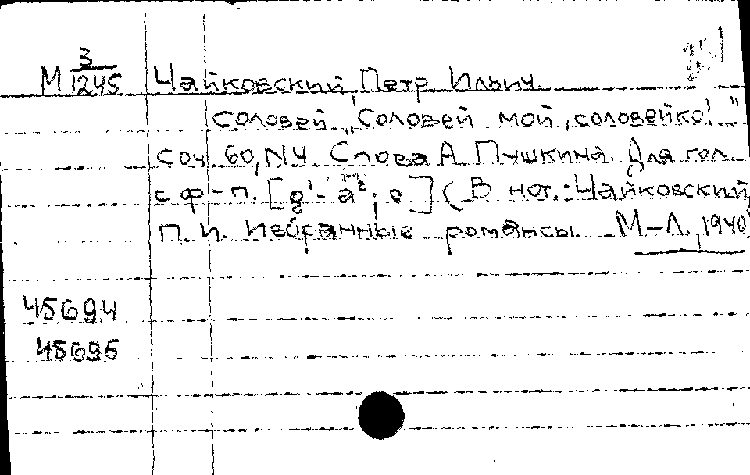 М 3/1245 Чайковский, Петр Ильич.
Соловей „Соловей мой, соловейко!.."
Соч. 60, N4. Слова А. Пушкина. Для гол.
с ф-п. [g¹-a²; e] (В нот.: Чайковский
П. И. Избранные романсы. М-Л., 1940
45694
45695